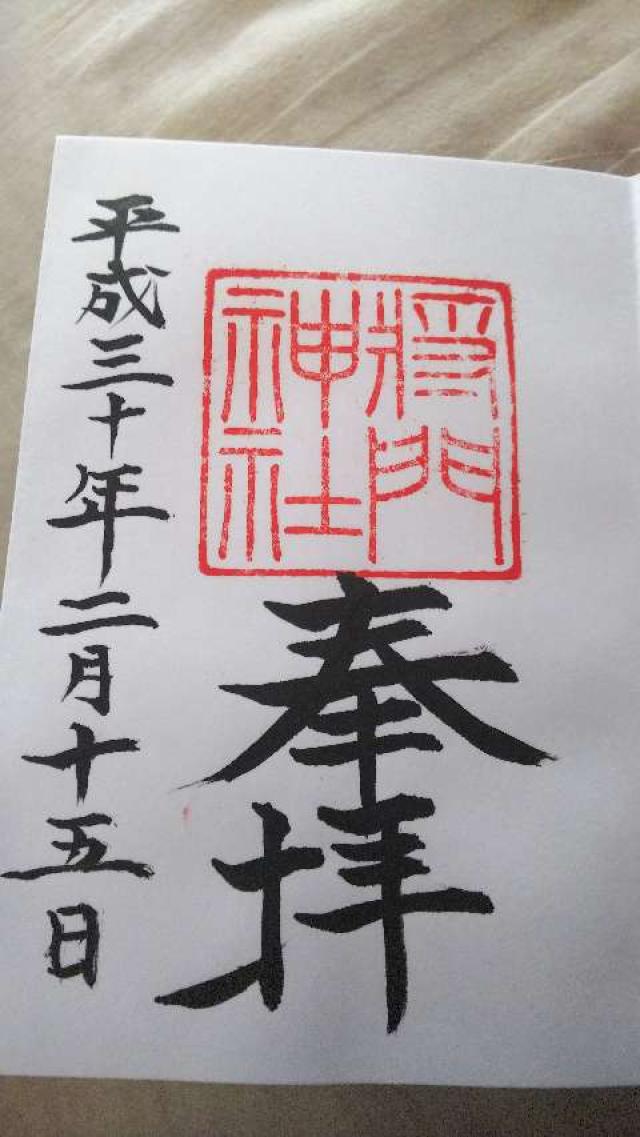 將門
神社
奉拝
平成三十年二月十五日